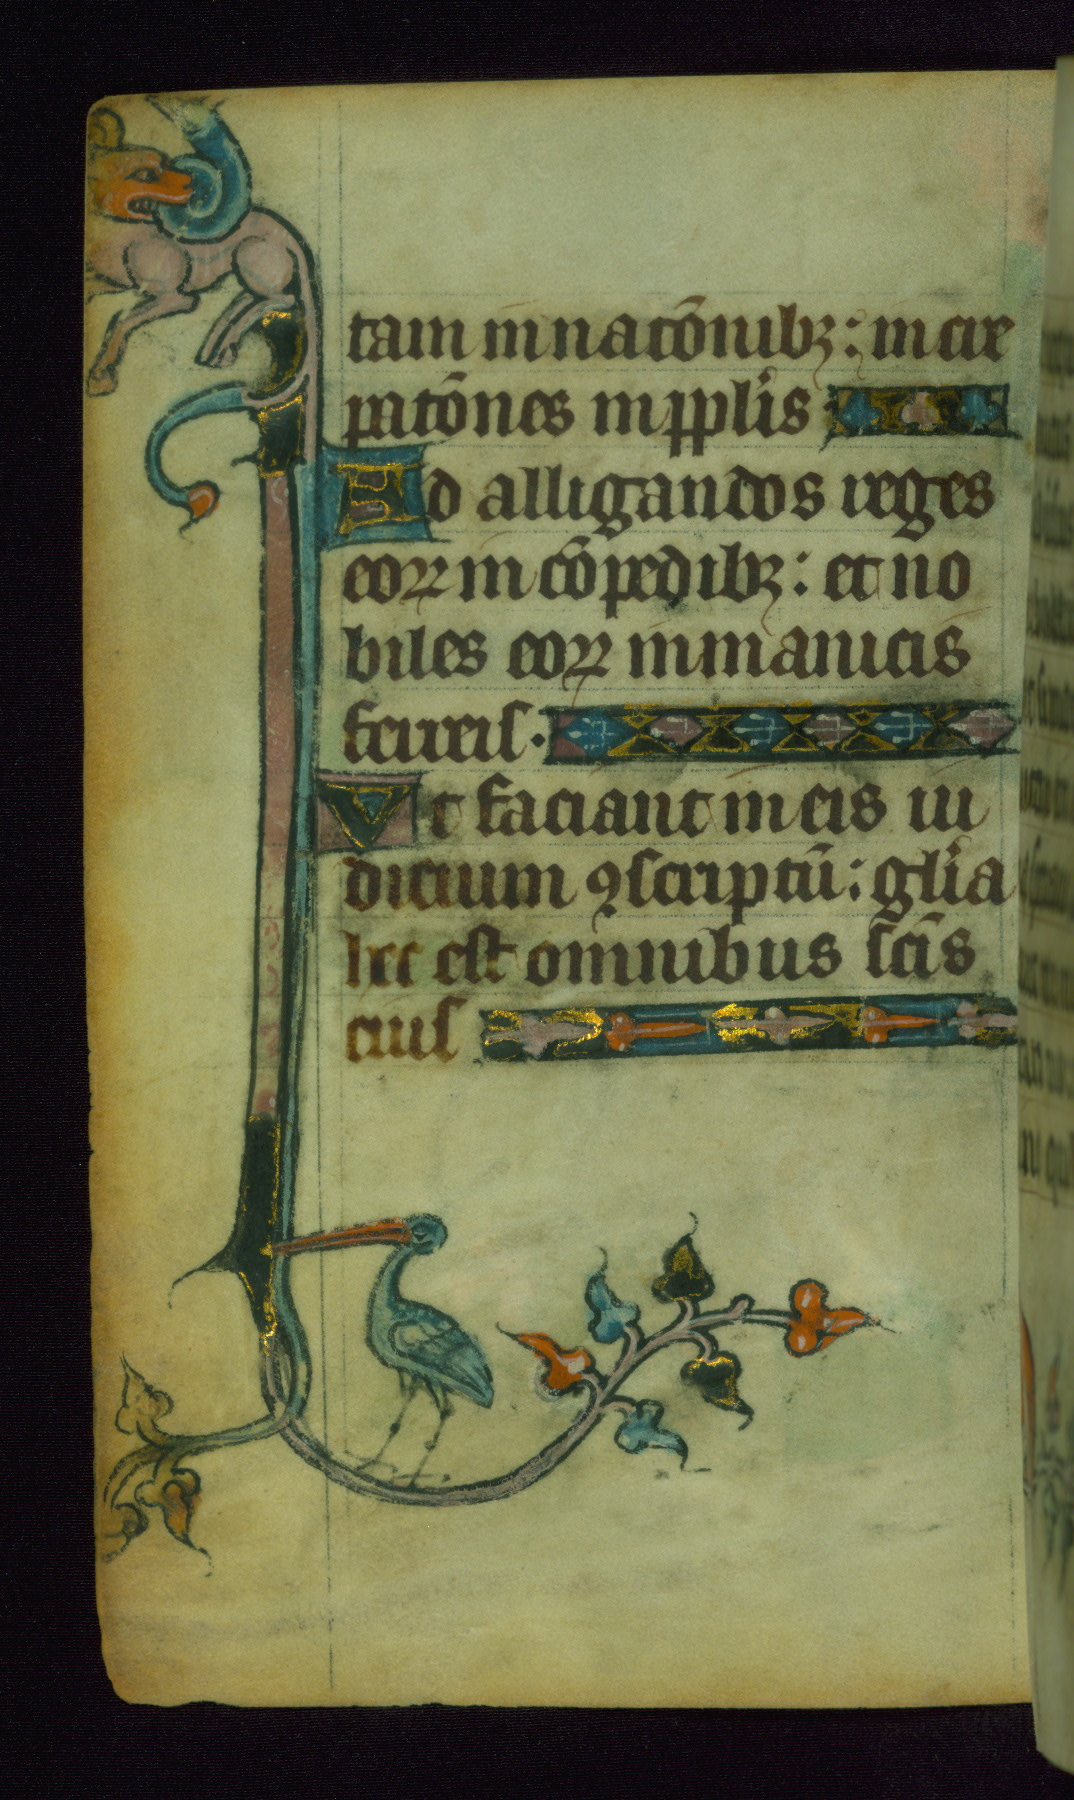 tam in nacōnibꝫ: incre
patōnes in pp̄lis
Ad alligandos reges
eoꝝ in cōpedibꝫ: et no
biles eoꝝ in manicis
ferreis.
Vt faciant in eis iu
dicium ꝯscriptū: glīa
hec est omnibus scīs
eius